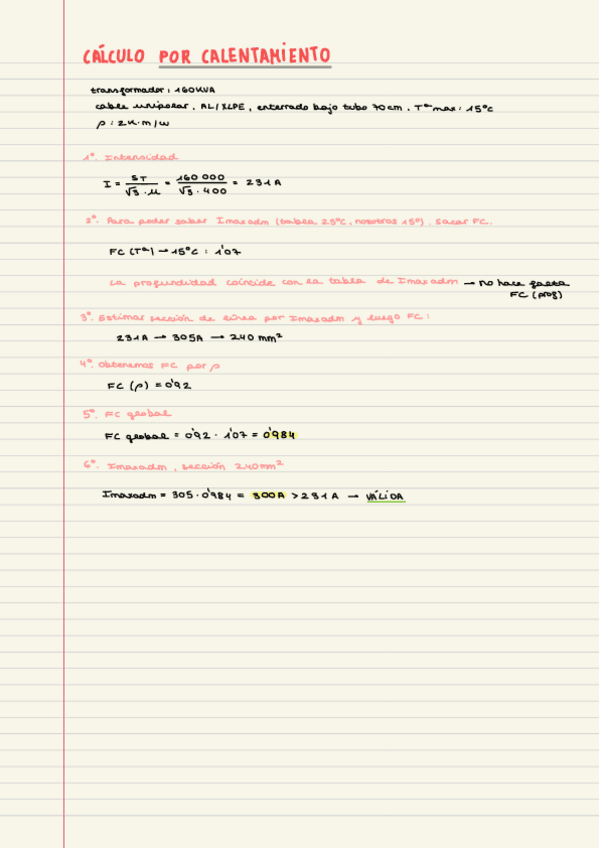 CÁLCULO POR CALENTAMIENTO
transformador: 160KVA
cable unipolar, AL/XLPE, enterrado bajo tubo 70cm. Tª max: 15ºC
ρ: 2K·m/W
1º. Intensidad
I = ST / √3 · U = 160 000 / √3 · 400 = 231 A
2º. Para poder saber Imaxadm (tabla 25ºC, nosotros 15º), sacar FC.
FC (Tª) → 15ºC : 1'07
La profundidad coincide con la tabla de Imaxadm → no hace falta
FC (prof)
3º. Estimar sección de línea por Imaxadm y luego FC:
231A → 305A → 240 mm²
4º. Obtenemos FC por ρ
FC (ρ) = 0'92
5º. FC global
FC global = 0'92 · 1'07 = 0'984
6º. Imaxadm, sección 240mm²
Imaxadm = 305 · 0'984 = 300A > 231 A → VÁLIDA